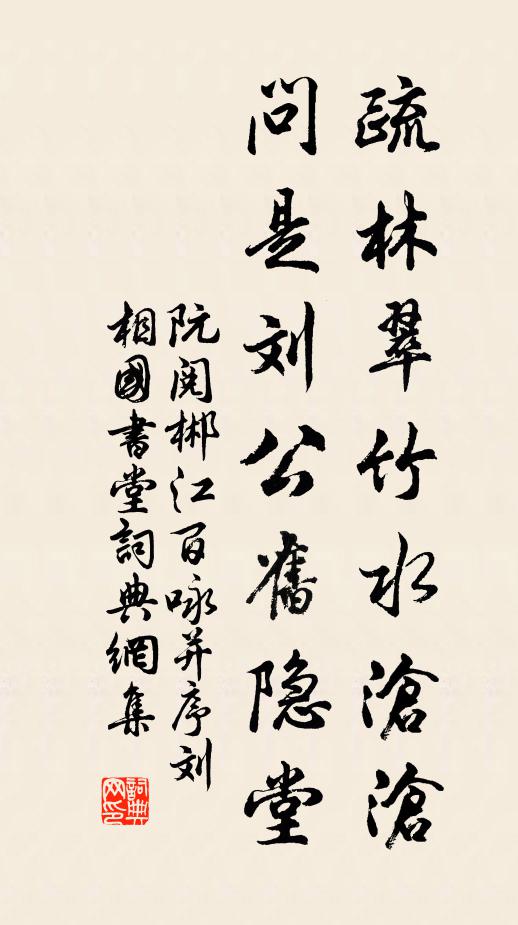 疏林翠竹水滄滄
問是刘公舊隐堂
阮阅郴江百咏并序刘
相國書堂詞典網集
詞典网印